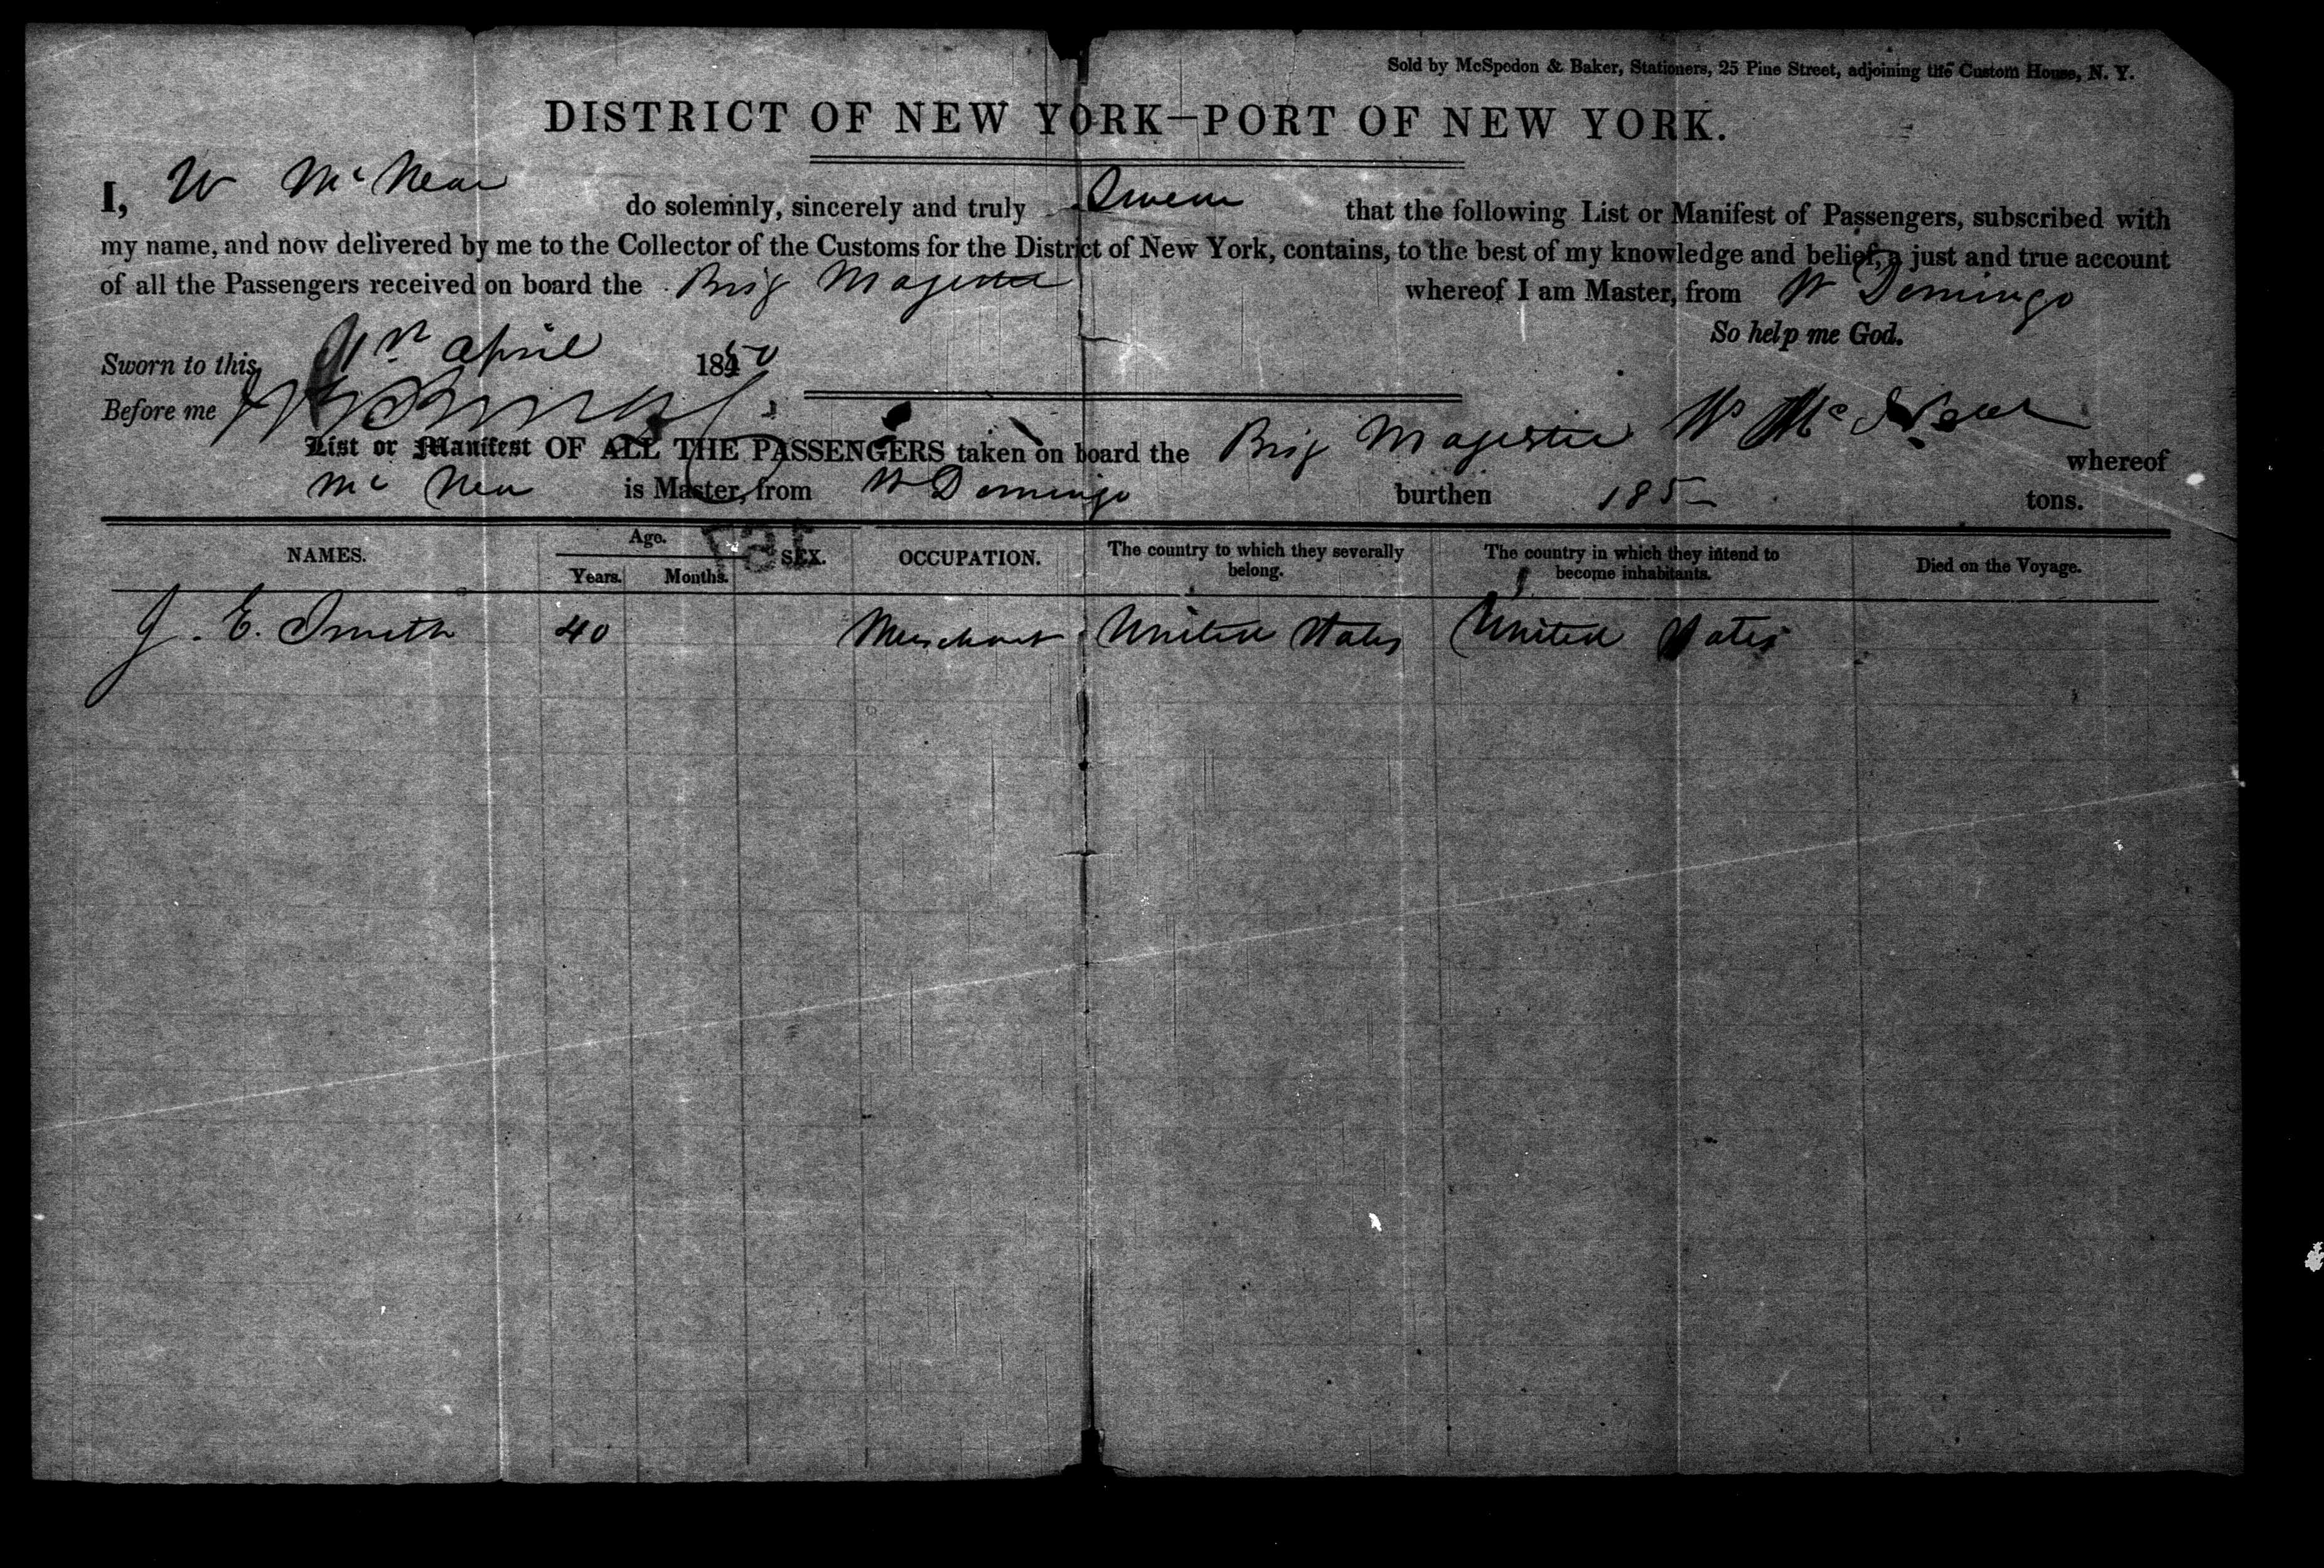 Sold by McSpedon & Baker, Stationers, 25 Pine Street, adjoining the Custom House, N. Y.
DISTRICT OF NEW YORK—PORT OF NEW YORK.
I, W McNear do solemnly, sincerely and truly Swear that the following List or Manifest of Passengers, subscribed with
my name, and now delivered by me to the Collector of the Customs for the District of New York, contains, to the best of my knowledge and belief, a just and true account
of all the Passengers received on board the Brig Majestic whereof I am Master, from St Domingo
So help me God.
Sworn to this April 1850
Before me
List or Manifest OF ALL THE PASSENGERS taken on board the Brig Majestic W McNear whereof
McNear is Master, from St Domingo burthen 185 tons.
NAMES. Age. SEX. OCCUPATION. The country to which they severally belong. The country in which they intend to become inhabitants. Died on the Voyage.
Years. Months.
J. E. Smith 40 Merchant United States United States